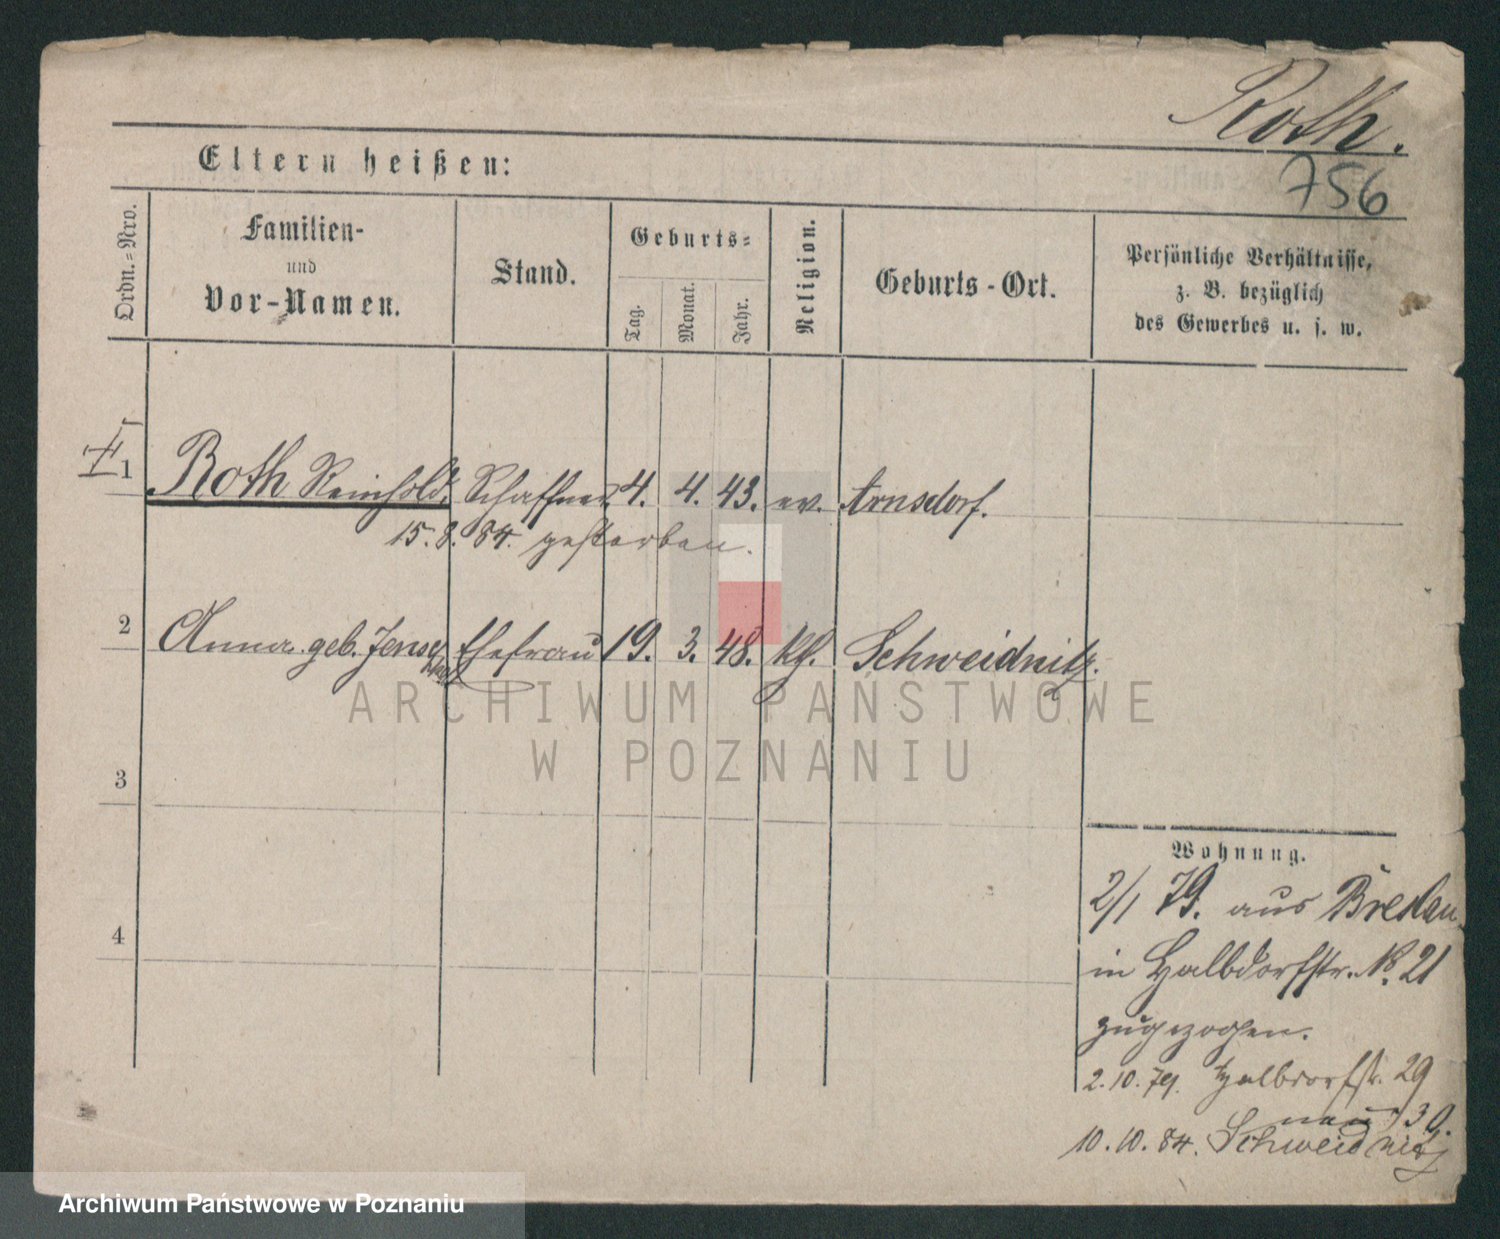 Roth.
756
Eltern heißen:
Ordn.=Nro.
Familien-
und
Vor-Namen.
Stand.
Geburts=
Tag.
Monat.
Jahr.
Religion.
Geburts-Ort.
Persönliche Verhältnisse,
z. B. bezüglich
des Gewerbes u. s. w.
1 Roth Reinhold. Schaffner. 4. 4. 43. ev. Arnsdorf.
15. 8. 84. gestorben.
2 Anna geb. Ehefrau 19. 3. 48. kth. Schweidnitz.
3
4
Wohnung.
2/1 79. aus Breslau
in Halbdorfstr. No. 21
zugezogen.
2. 10. 79. Halbdorfstr. 29
neu 30.
10. 10. 84. Schweidnitz
ARCHIWUM PAŃSTWOWE
W POZNANIU
Archiwum Państwowe w Poznaniu